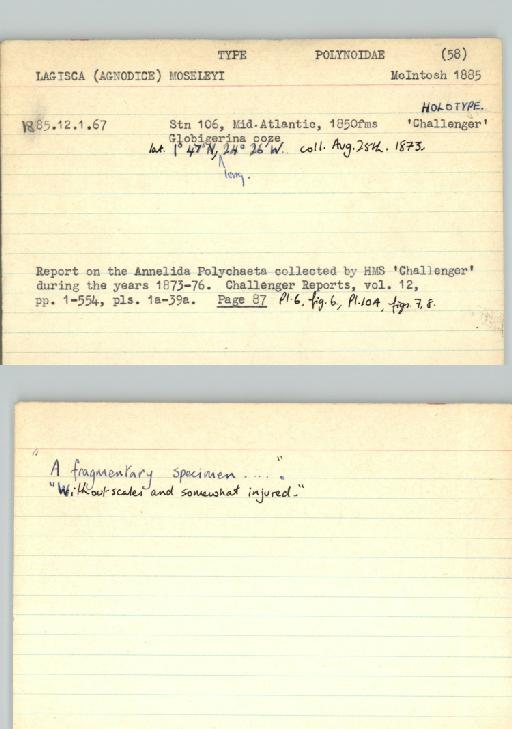 TYPE POLYNOIDAE (58)
LAGISCA (AGNODICE) MOSELEYI McIntosh 1885
HOLOTYPE.
85.12.1.67 Stn 106, Mid-Atlantic, 1850fms 'Challenger'
Globigerina ooze
lat. 1° 47' N, 24° 26' W. coll. Aug. 25th. 1873.
long.
Report on the Annelida Polychaeta collected by HMS 'Challenger'
during the years 1873-76. Challenger Reports, vol. 12,
pp. 1-554, pls. 1a-39a. Page 87 Pl. 6. fig. 6, Pl. 10A, figs. 7, 8.
"A fragmentary specimen ....".
"Without scales and somewhat injured."